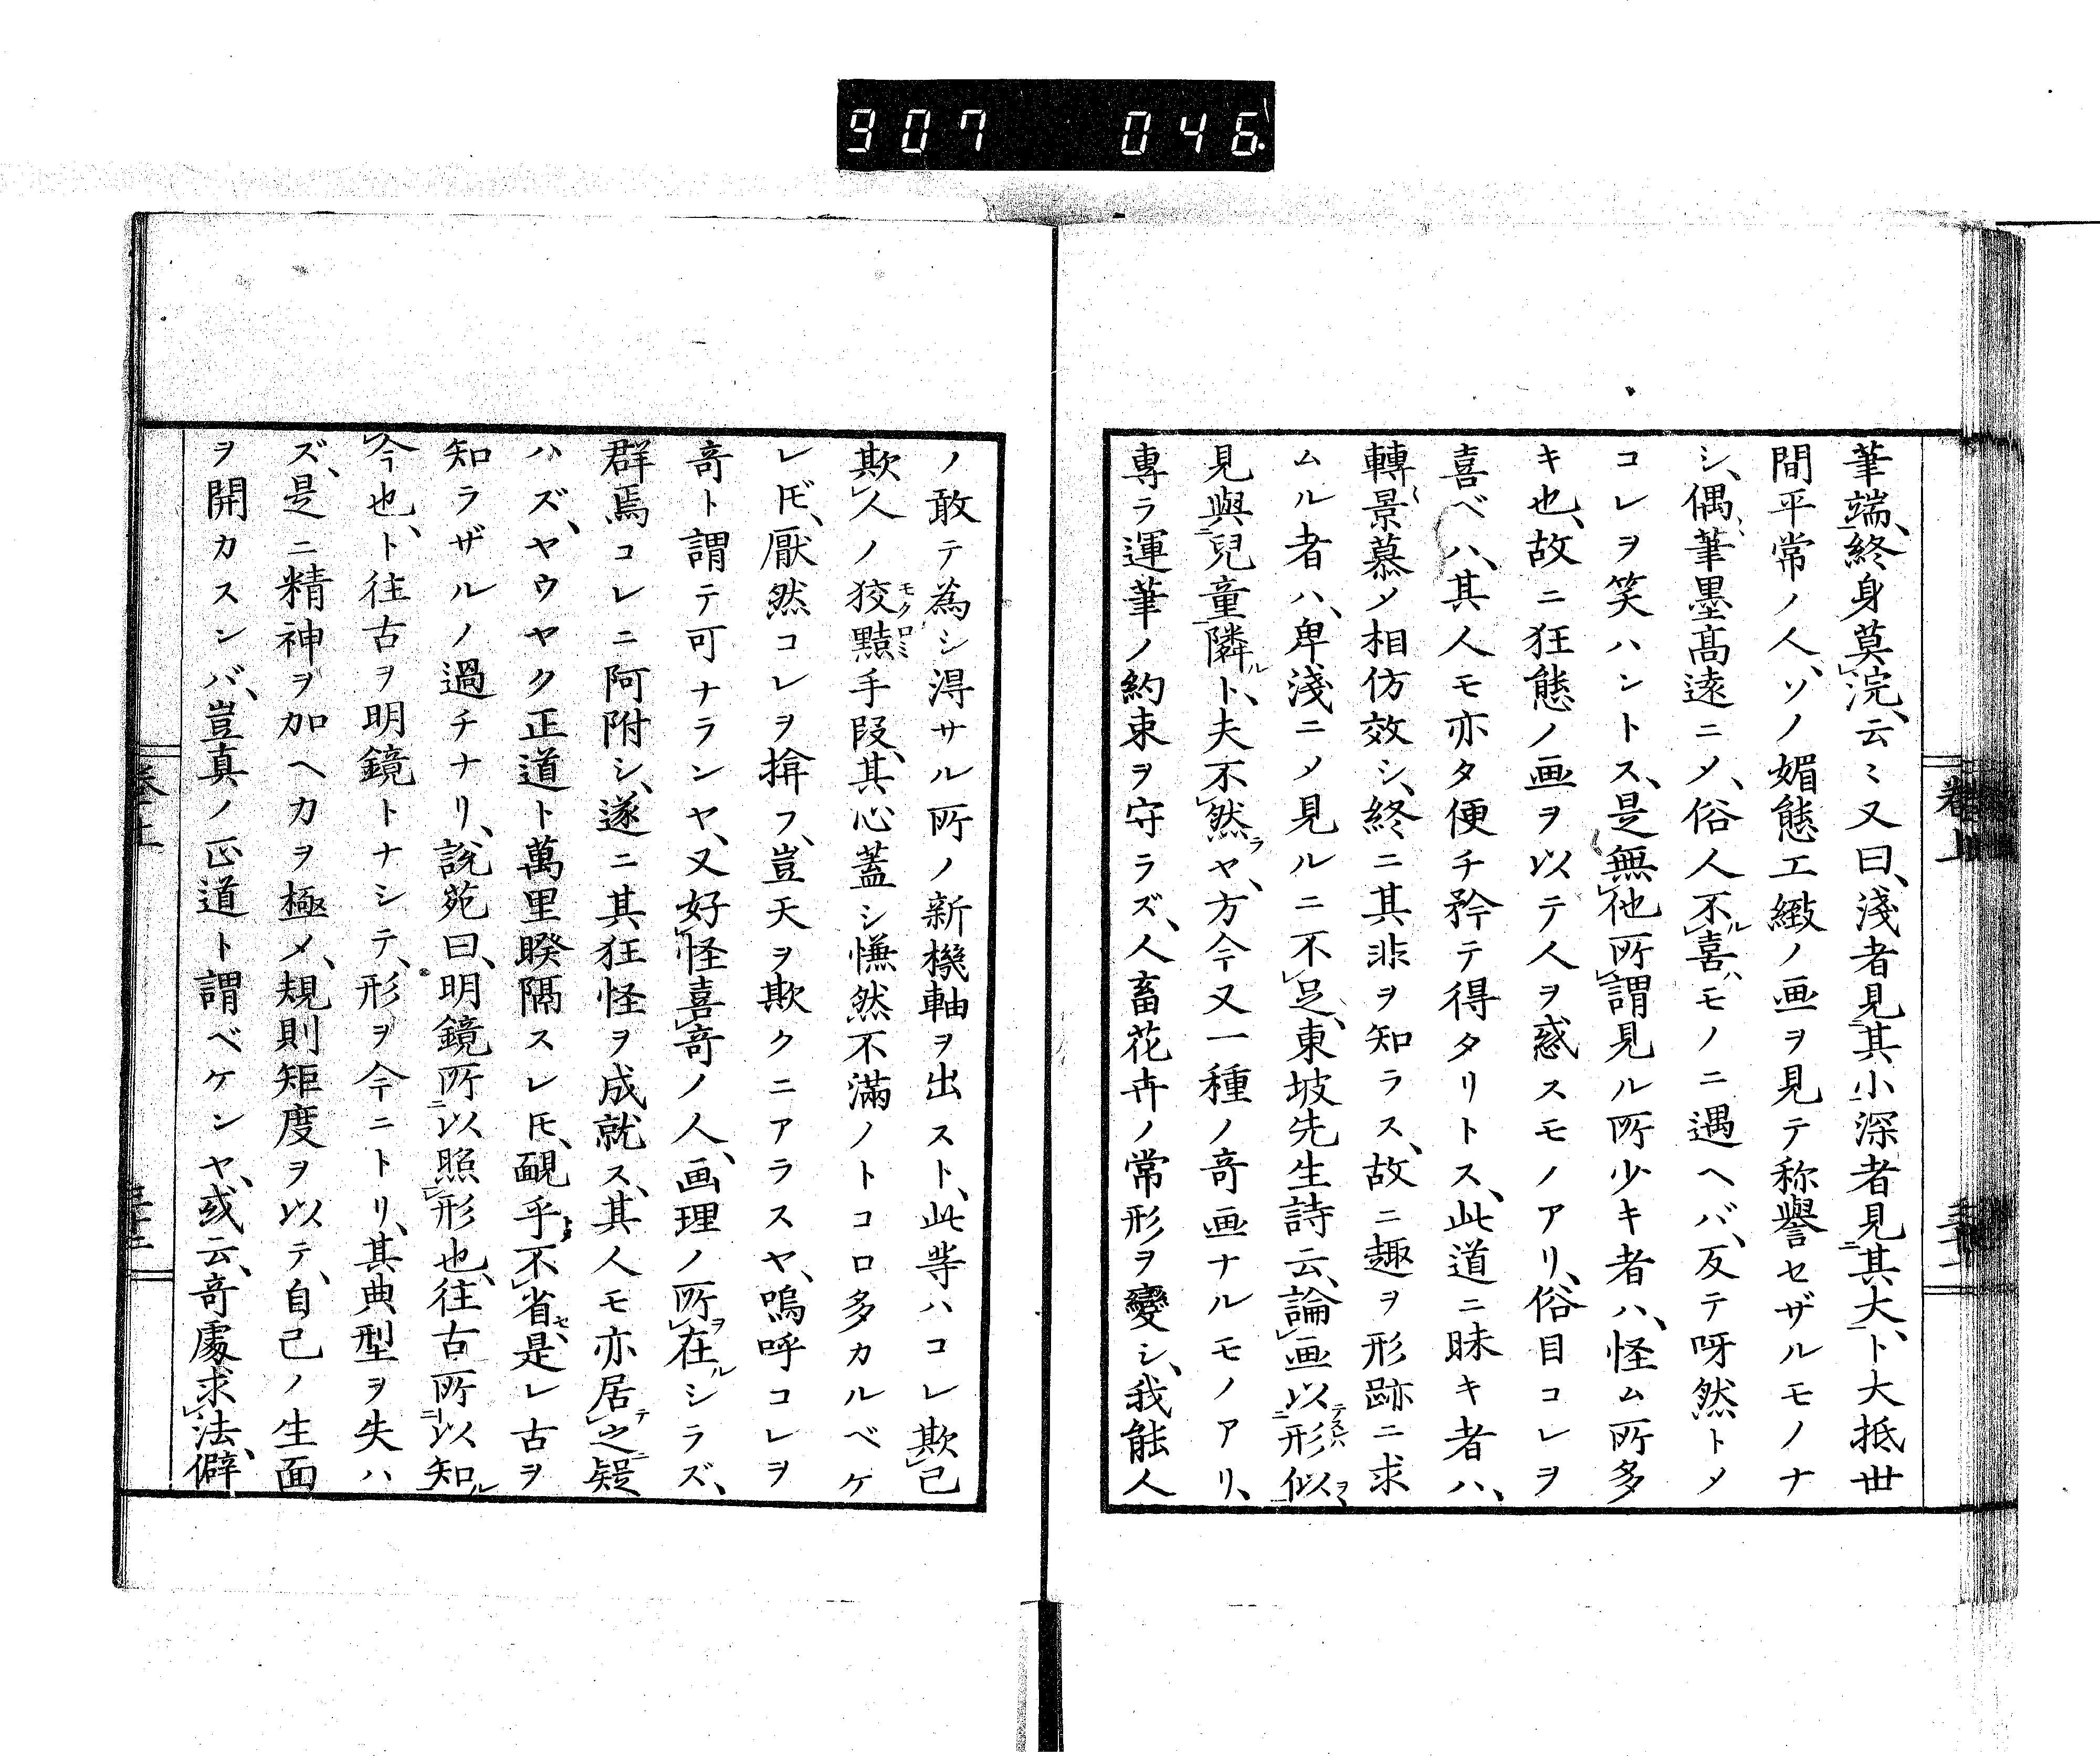 907 046
筆端、終身莫浣、云〻又曰、淺者見其小深者見其大、ト大抵世
間平常ノ人、ソノ媚態工緻ノ画ヲ見テ称譽セザルモノナ
シ、偶〻筆墨髙遠ニメ、俗人不喜ルハモノニ遇ヘバ、反テ呀然トメ
コレヲ笑ハントス、是無他所謂見ル所少キ者ハ、怪ム所多
キ也、故ニ狂態ノ画ヲ以テ人ヲ惑スモノアリ、俗目コレヲ
喜ベハ、其人モ亦タ便チ矜テ得タリトス、此道ニ昧キ者ハ、
轉〻景慕メ相仿效シ、終ニ其非ヲ知ラス、故ニ趣ヲ形跡ニ求
ムル者ハ、卑淺ニメ見ルニ不足、東坡先生詩云、論画以形似
見與兒童隣ルト、夫不然ラヤ、方今又一種ノ竒画ナルモノアリ、
專ラ運筆ノ約束ヲ守ラズ、人畜花卉ノ常形ヲ變シ、我能人
ノ敢テ為シ淂サル所ノ新機軸ヲ出スト、此等ハコレ欺己
欺人ノ狡黠手段、其心蓋シ慊然不滿ノトコロ多カルベケ
レ𪜈、厭然コレヲ揜フ、豈天ヲ欺クニアラスヤ、嗚呼コレヲ
竒ト謂テ可ナランヤ、又好怪喜竒ノ人、画理ノ所在ヲルシラズ、
群焉コレニ阿附シ、遂ニ其狂怪ヲ成就ス、其人モ亦居之テニ疑
ハズ、ヤウヤク正道ト萬里睽隔スレ𪜈、靦乎不省セ、是レ古ヲ
知ラザルノ過チナリ、說苑曰、明鏡所以照形也、往古所以知ル
今也、ト往古ヲ明鏡トナシテ、形ヲ今ニトリ、其典型ヲ失ハ
ズ、是ニ精神ヲ加ヘ力ヲ極メ、規則矩度ヲ以テ、自己ノ生面
ヲ開カスンバ、豈真ノ正道ト謂ベケンヤ、或云、竒處求法、僻